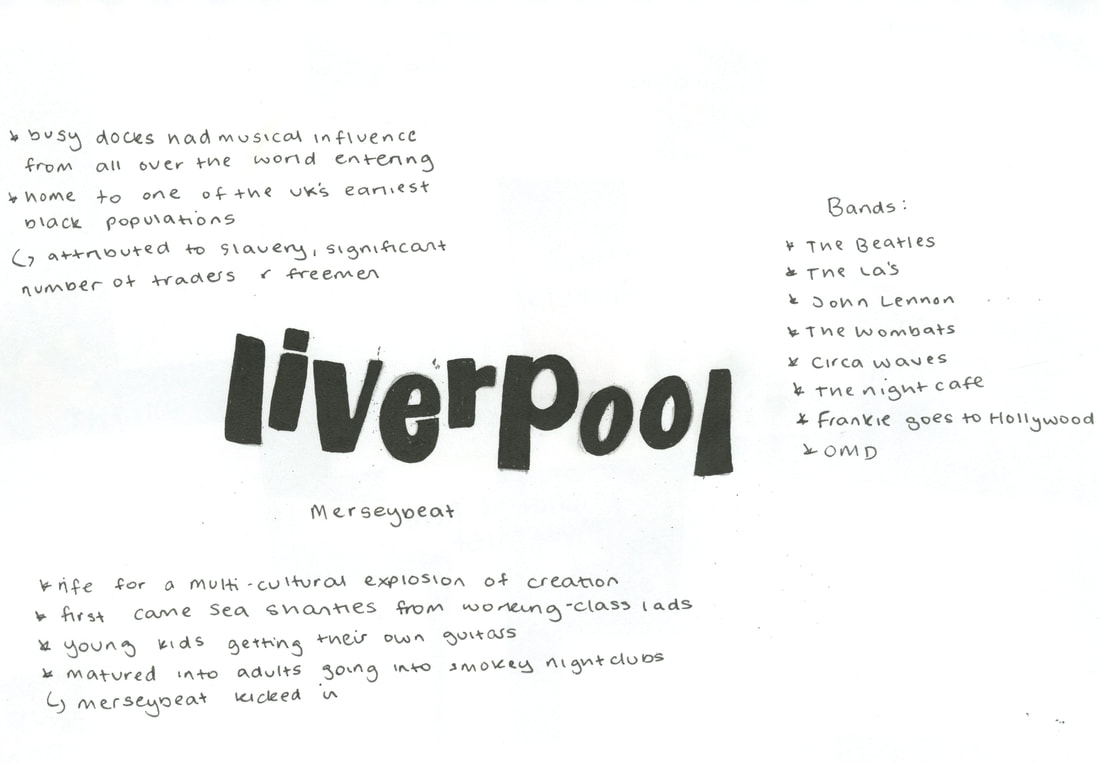 * busy docks had musical influence
from all over the world entering
* home to one of the uk's earliest
black populations
↳ attributed to slavery, significant
number of traders & freemen
Bands:
* The Beatles
* The La's
* John Lennon
* The Wombats
* Circa waves
* The night cafe
* Frankie goes to Hollywood
* OMD
liverpool
Merseybeat
* rife for a multi-cultural explosion of creation
* first came sea shanties from working-class lads
* young kids getting their own guitars
* matured into adults going into smokey nightclubs
↳ merseybeat kicked in